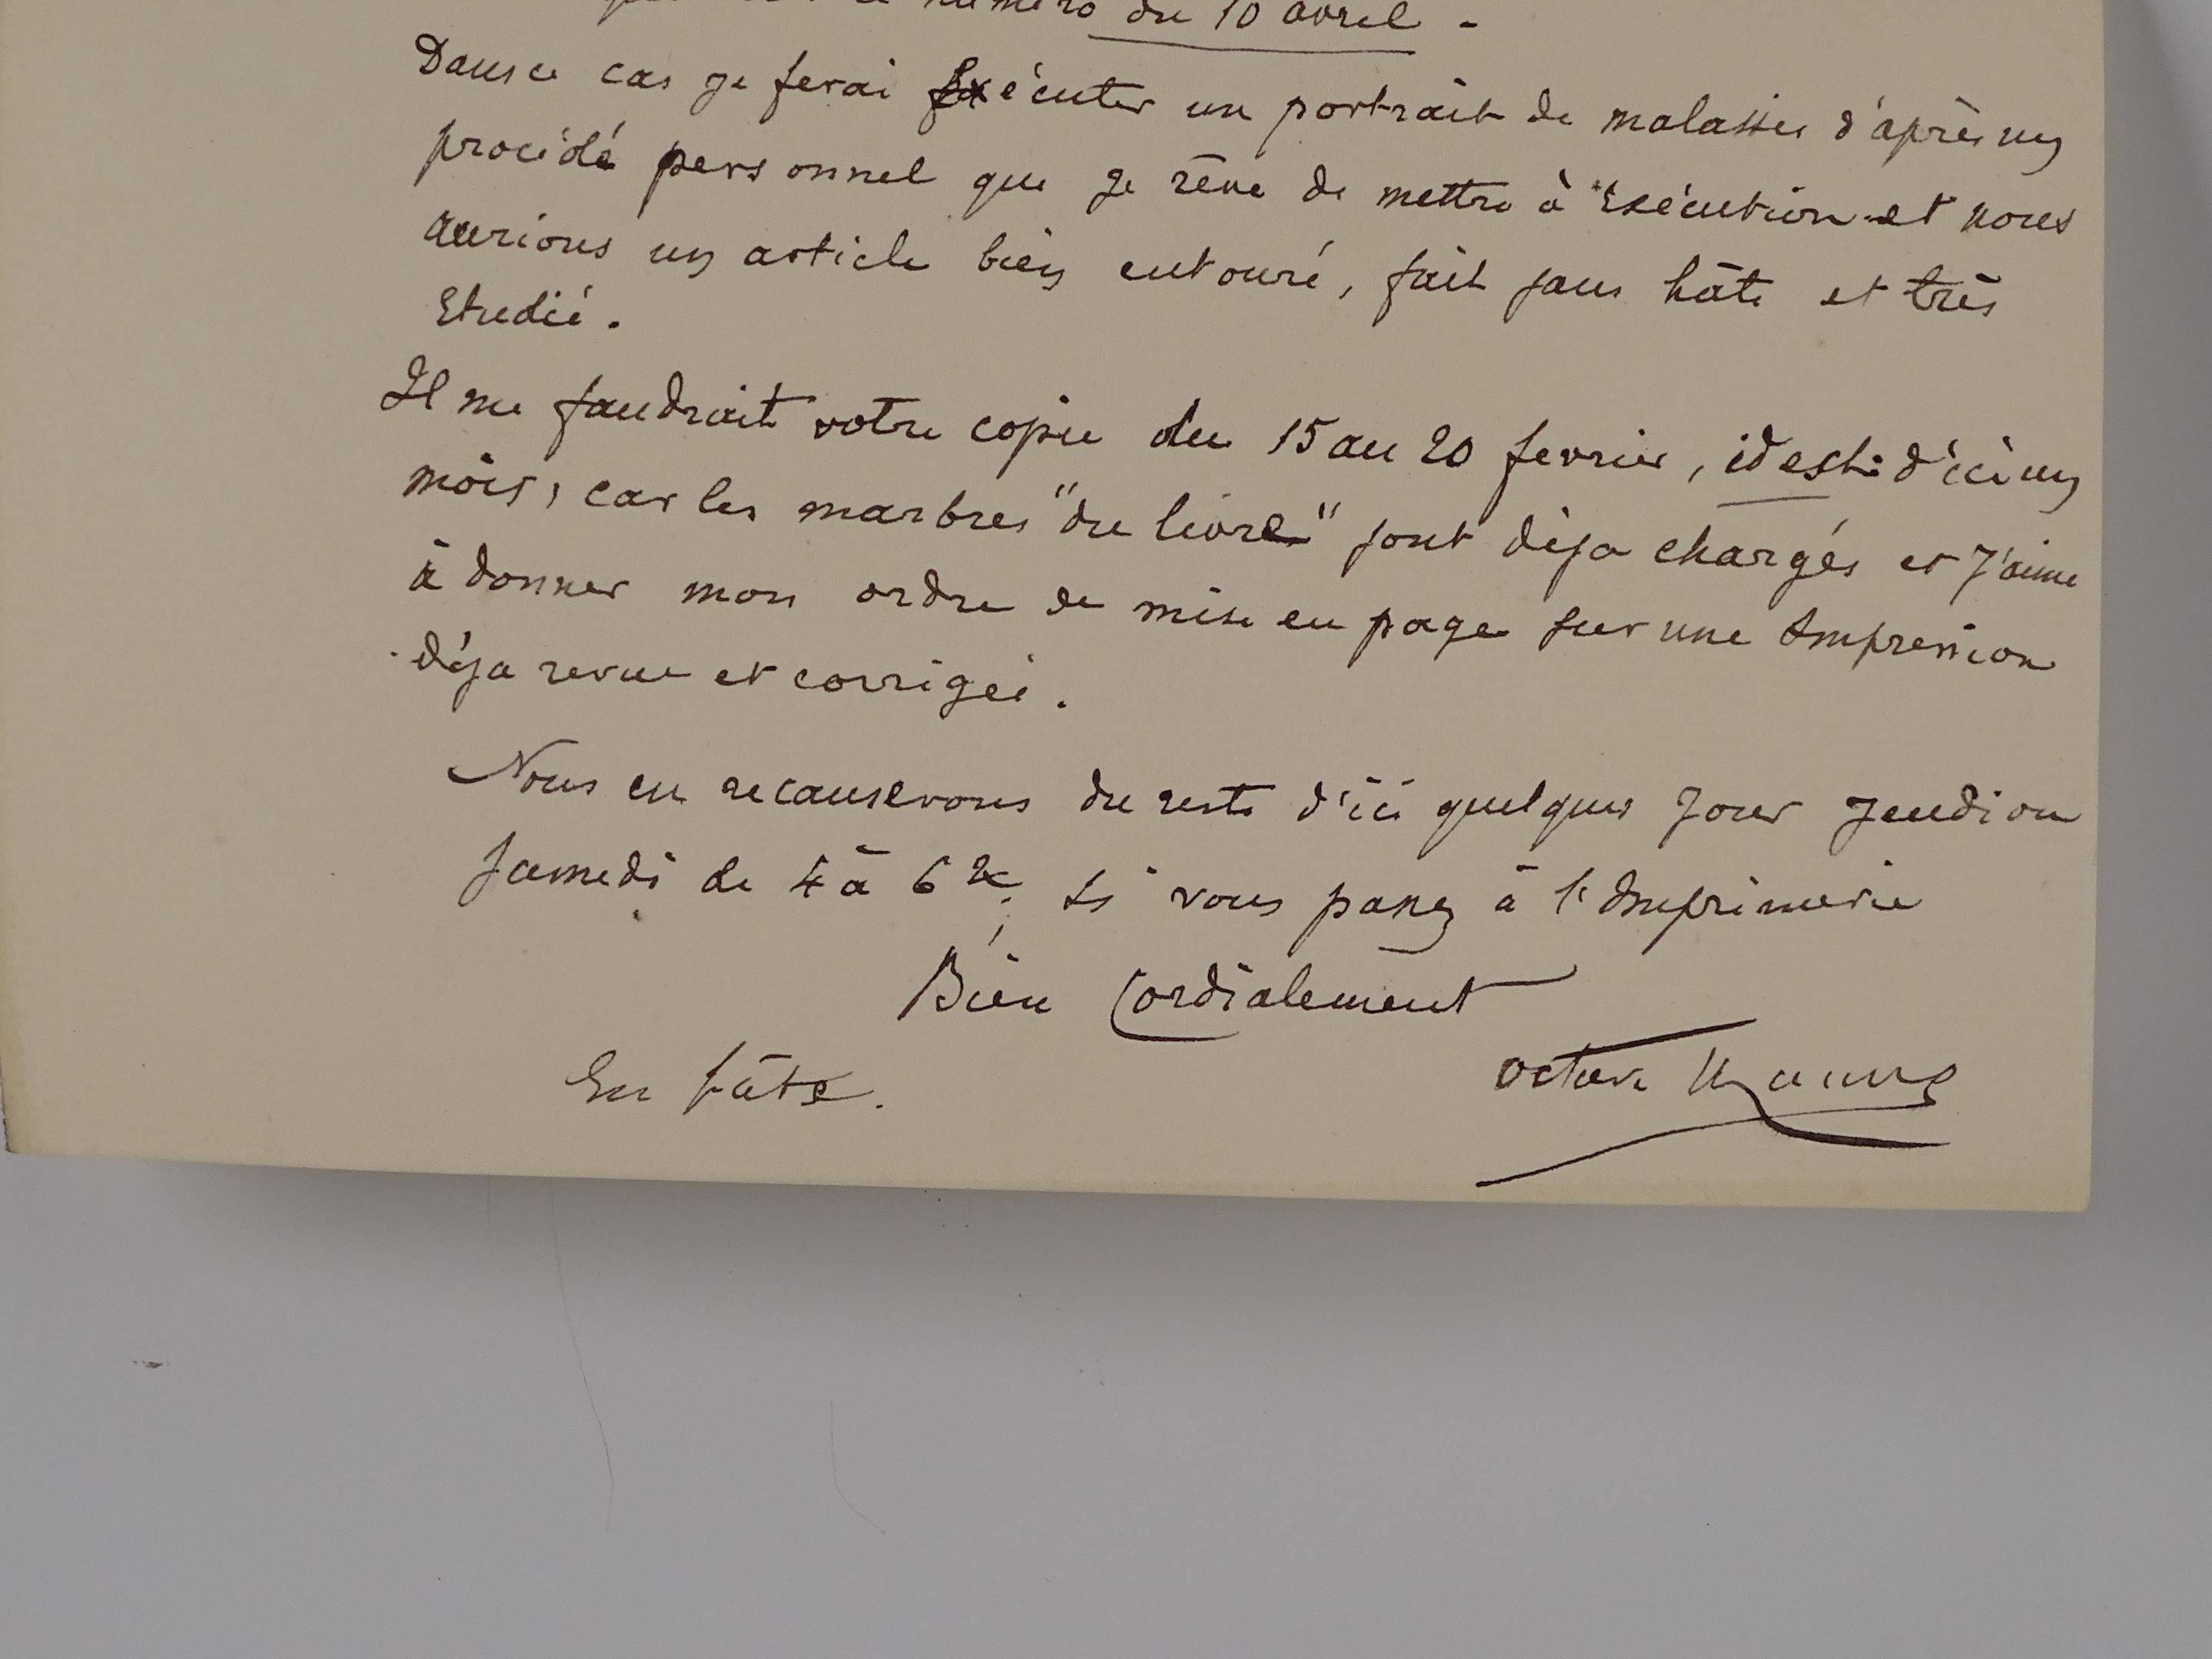 numéro du 10 avril -
Dans ce cas je ferai exécuter un portrait de malassis d'après un
procédé personnel que je rêve de mettre à Exécution et nous
aurions un article bien entouré, fait sans hâte et très
Etudié.
Il me faudrait votre copie du 15 au 20 fevrier, id est: d'ici un
mois, car les marbres "du livre" sont déja chargés et j'aime
à donner mon ordre de mise en page sur une Impression
déja revue et corrigée.
Nous en recauserons du reste d'ici quelques jours jeudi ou
samedi de 4 à 6 h, si vous passez à l'Imprimerie
Bien Cordialement
En hâte.
Octave Uzanne